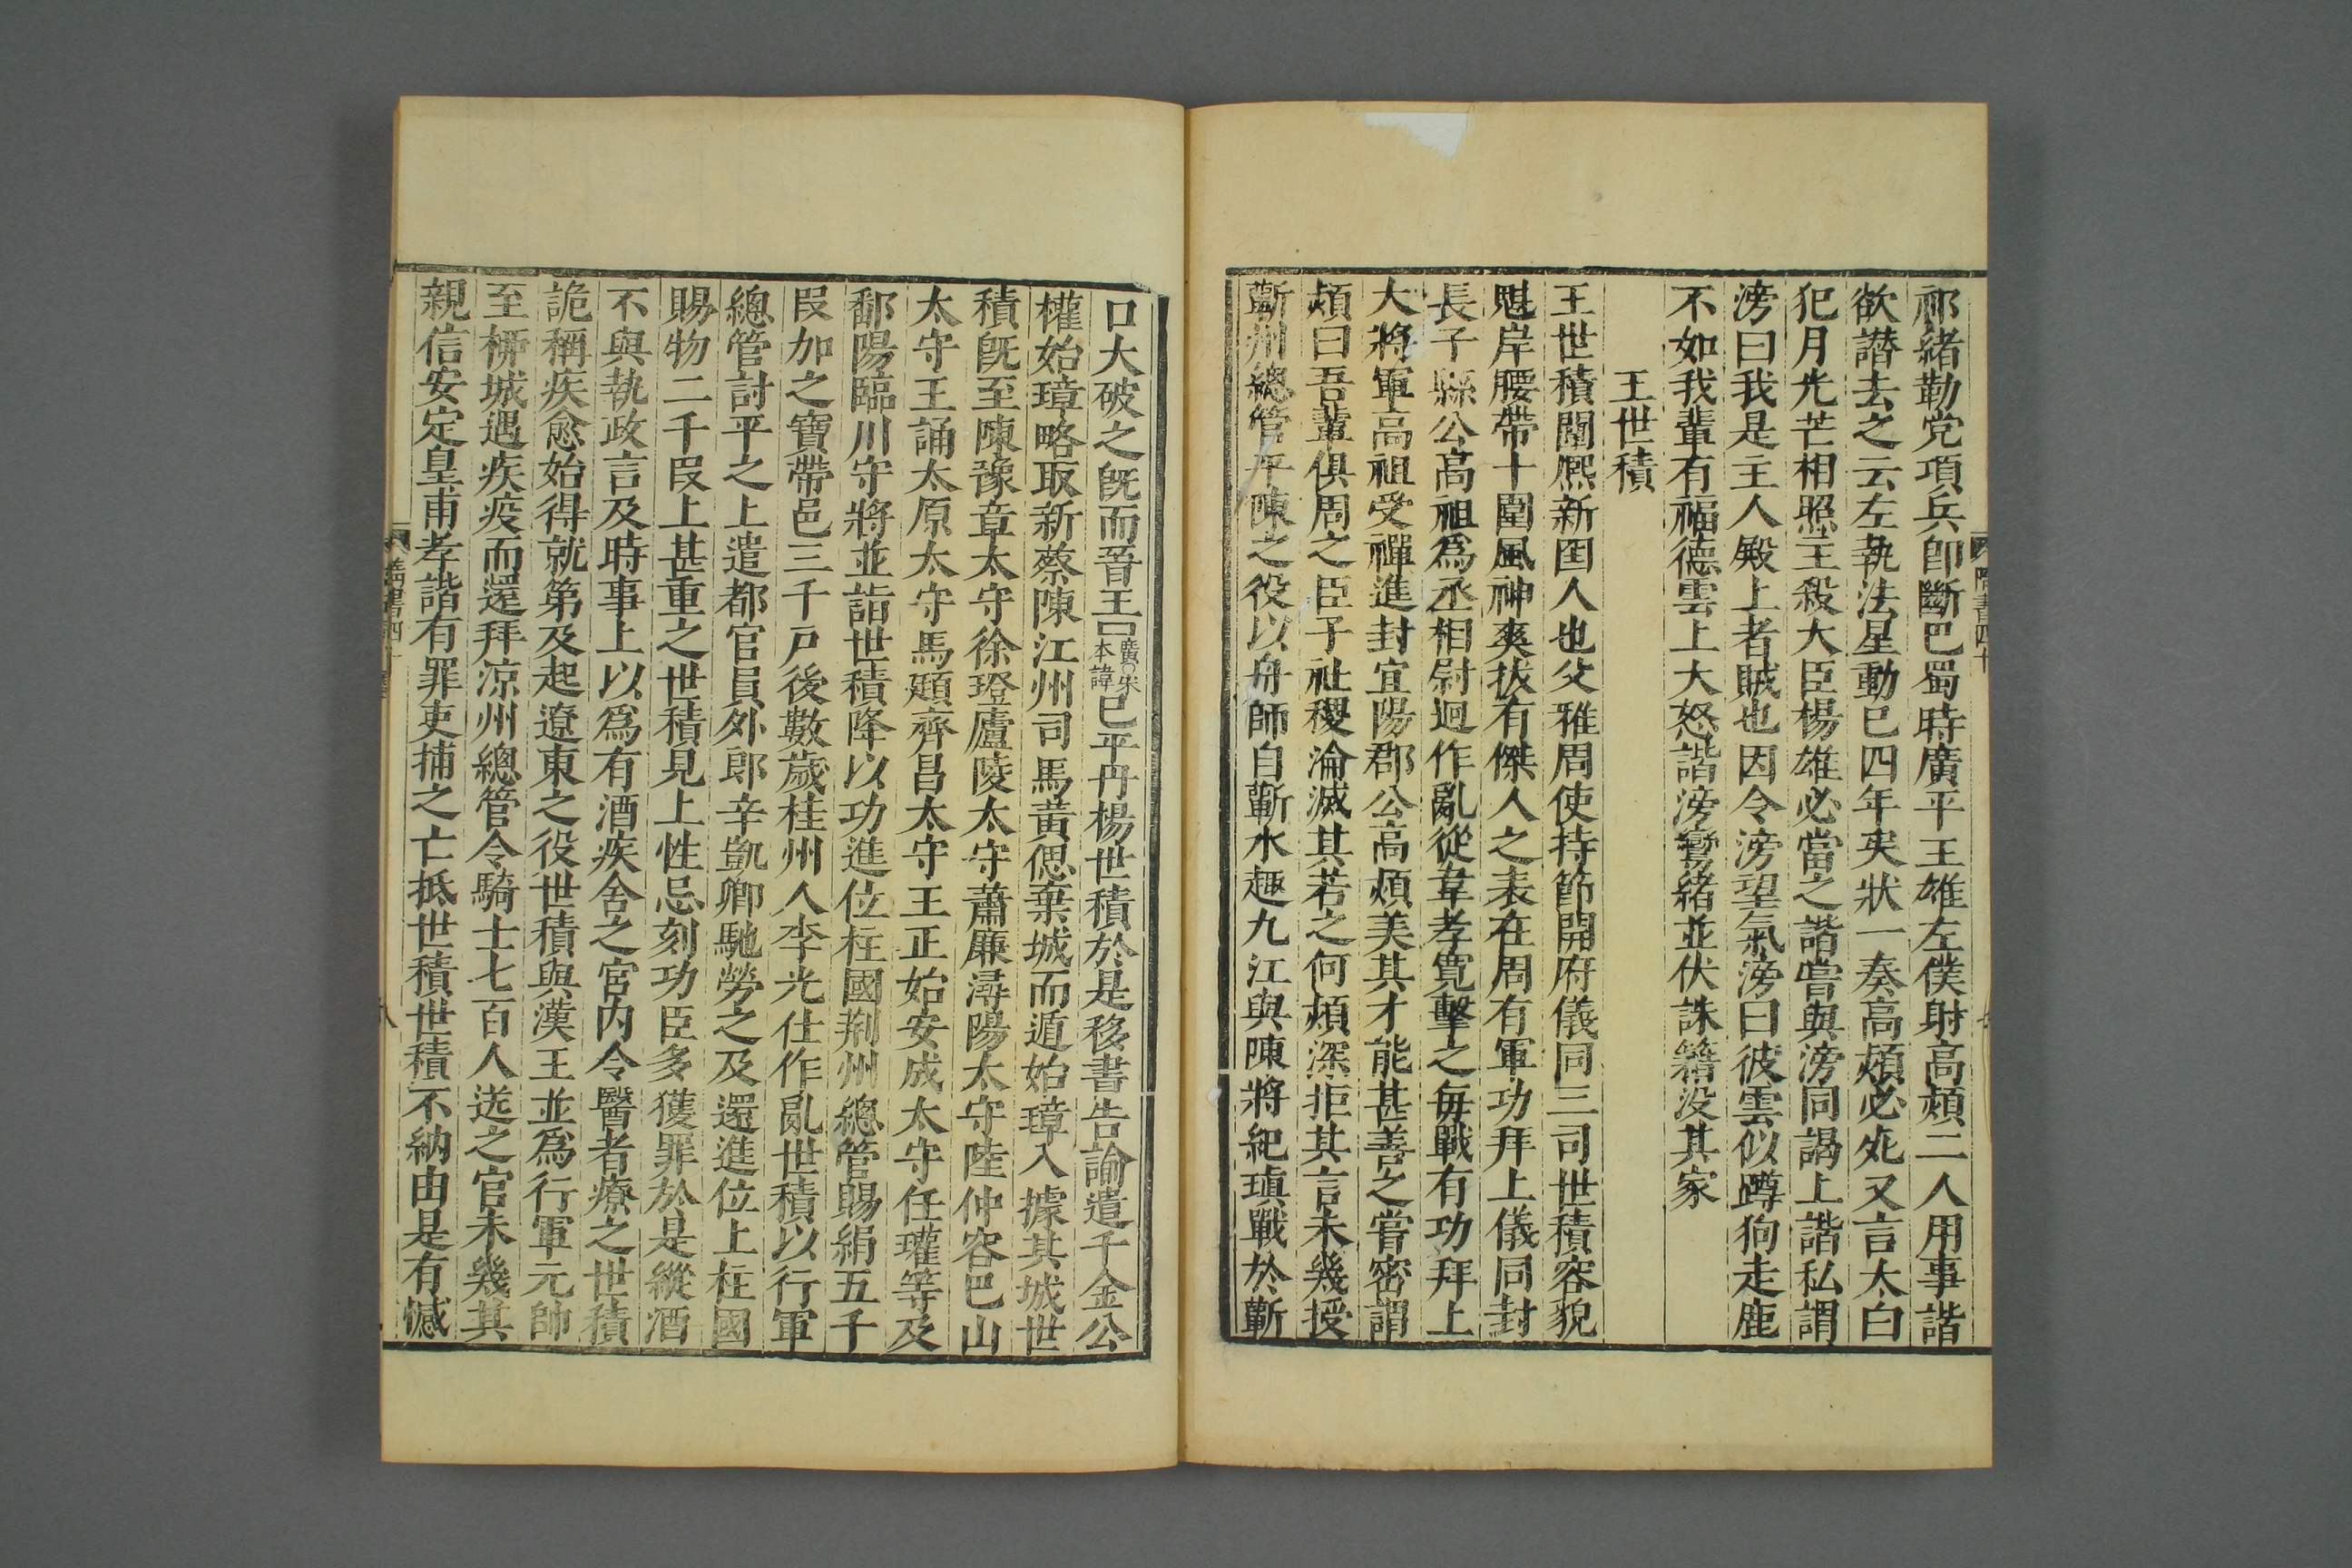 祁緒勒党項兵卽斷巴蜀時廣平王雄左僕射高熲二人用事諧
欲譖去之云左執法星動已四年矣狀一奏高熲必死又言太白
犯月光芒相照主殺大臣楊雄必當之諧嘗與滂同謁上諧私謂
滂曰我是主人殿上者賊也因令滂望氣滂曰彼雲似蹲狗走鹿
不如我輩有福德雲上大怒諧滂鸞緒並伏誅籍没其家
王世積
王世積闡熈新囶人也父雅周使持節開府儀同三司世積容貌
魁岸腰帶十圍風神爽拔有傑人之表在周有軍功拜上儀同封
長子縣公高祖爲丞相尉迥作亂從韋孝寛擊之每戰有功拜上
大將軍高祖受禪進封宜陽郡公高熲美其才能甚善之嘗密謂
熲曰吾輩俱周之臣子社稷淪滅其若之何熲深拒其言未幾授
蘄州總管平陳之役以舟師自蘄水趣九江與陳將紀瑱戰於蘄
口大破之旣而晉王
廣○宋
本諱
已平丹楊世積於是移書告諭遣千金公
權始璋略取新蔡陳江州司馬黃偲棄城而遁始璋入據其城世
積旣至陳豫章太守徐璒廬陵太守蕭廉潯陽太守陸仲容巴山
太守王誦太原太守馬頲齊昌太守王正始安成太守任瓘等及
鄱陽臨川守將並詣世積降以功進位柱國荆州總管賜絹五千
段加之寶帶邑三千戸後數歲桂州人李光仕作亂世積以行軍
總管討平之上遣都官員外郎辛凱卿馳勞之及還進位上柱國
賜物二千段上甚重之世積見上性忌刻功臣多獲罪於是縱酒
不與執政言及時事上以爲有酒疾舍之宮内令醫者療之世積
詭稱疾愈始得就第及起遼東之役世積與漢王並爲行軍元帥
至栁城遇疾疫而還拜涼州總管令騎士七百人送之官未幾其
親信安定皇甫孝諧有罪吏捕之亡抵世積世積不納由是有憾